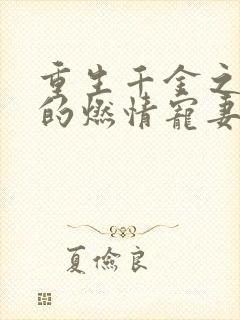 重生千金之
的燃情宠妻
夏俭良